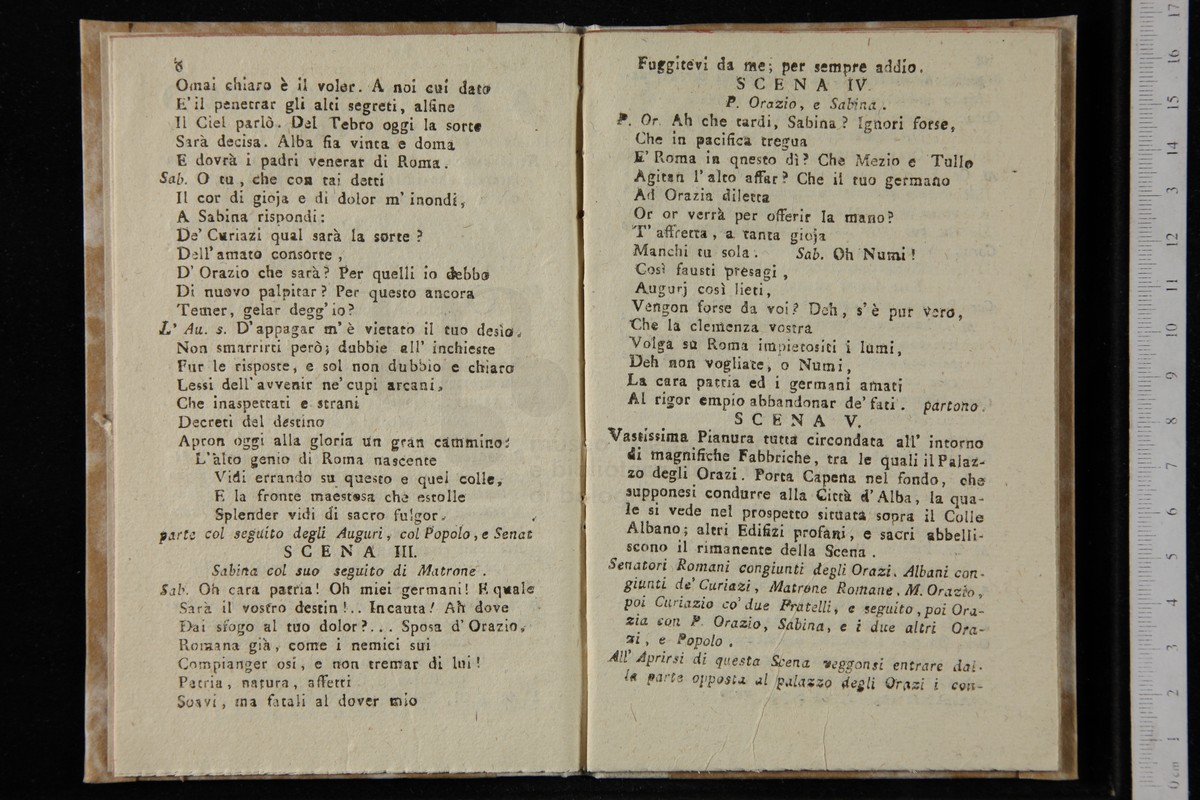 8
Omai chiaro è il voler. A noi cui dato
E' il penetrar gli alti segreti, alfine
Il Ciel parlò. Del Tebro oggi la sorte
Sarà decisa. Alba fia vinta e doma
E dovrà i padri venerar di Roma.
Sab. O tu, che con tai detti
Il cor di gioja e di dolor m' inondi,
A Sabina rispondi:
De' Curiazi qual sarà la sorte?
Dell' amato consorte,
D' Orazio che sarà? Per quelli io debbo
Di nuovo palpitar? Per questo ancora
Temer, gelar degg' io?
L' Au. s. D' appagar m' è vietato il tuo desìo.
Non smarrirti però; dubbie all' inchieste
Fur le risposte, e sol non dubbio e chiaro
Lessi dell' avvenir ne' cupi arcani,
Che inaspettati e strani
Decreti del destino
Apron oggi alla gloria un gran cammino:
L' alto genio di Roma nascente
Vidi errando su questo e quel colle,
E la fronte maestosa che estolle
Splender vidi di sacro fulgor.
parte col seguito degli Auguri, col Popolo, e Senat
SCENA III.
Sabina col suo seguito di Matrone.
Sab. Oh cara patria! Oh miei germani! E quale
Sarà il vostro destin!.. Incauta! Ah dove
Dai sfogo al tuo dolor?... Sposa d' Orazio,
Romana già, come i nemici sui
Compianger osi, e non tremar di lui!
Patria, natura, affetti
Soavi, ma fatali al dover mio
Fuggitevi da me; per sempre addio.
SCENA IV.
P. Orazio, e Sabina.
P. Or. Ah che tardi, Sabina? Ignori forse,
Che in pacifica tregua
E' Roma in qnesto dì? Che Mezio e Tullo
Agitan l' alto affar? Che il tuo germano
Ad Orazia diletta
Or or verrà per offerir la mano?
T' affretta, a tanta gioja
Manchi tu sola. Sab. Oh Numi!
Così fausti presagi,
Augurj così lieti,
Vengon forse da voi? Deh, s' è pur vero,
Che la clemenza vostra
Volga su Roma impietositi i lumi,
Deh non vogliate, o Numi,
La cara patria ed i germani amati
Al rigor empio abbandonar de' fati. partono.
SCENA V.
Vastissima Pianura tutta circondata all' intorno
di magnifiche Fabbriche, tra le quali il Palaz-
zo degli Orazi. Porta Capena nel fondo, che
supponesi condurre alla Città d' Alba, la qua-
le si vede nel prospetto situata sopra il Colle
Albano; altri Edifizi profani, e sacri abbelli-
scono il rimanente della Scena.
Senatori Romani congiunti degli Orazi. Albani con-
giunti de' Curiazi, Matrone Romane, M. Orazio,
poi Curiazio co' due Fratelli, e seguito, poi Ora-
zia con P. Orazio, Sabina, e i due altri Ora-
zi, e Popolo.
All' Aprirsi di questa Scena veggonsi entrare dal-
la parte opposta al palazzo degli Orazi i con-